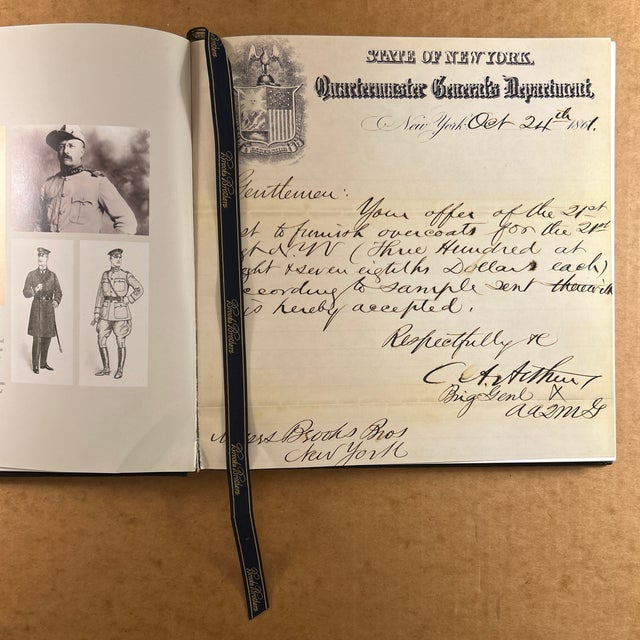 STATE OF NEW YORK,
Quartermaster General's Department,
New York Oct 24th 1861.
Gentlemen:
Your offer of the 21st
st to furnish overcoats for the 21st
gt N.YV (Three Hundred at
ght & seven eighths Dollars each)
ccording to sample sent
is hereby accepted.
Respectfully &c
C. A. Arthur
Brig Genl &
Messrs Brooks Bros
New York
Brooks Brothers
Brooks Brothers
Brooks Brothers
Brooks Brothers
Brooks Brothers